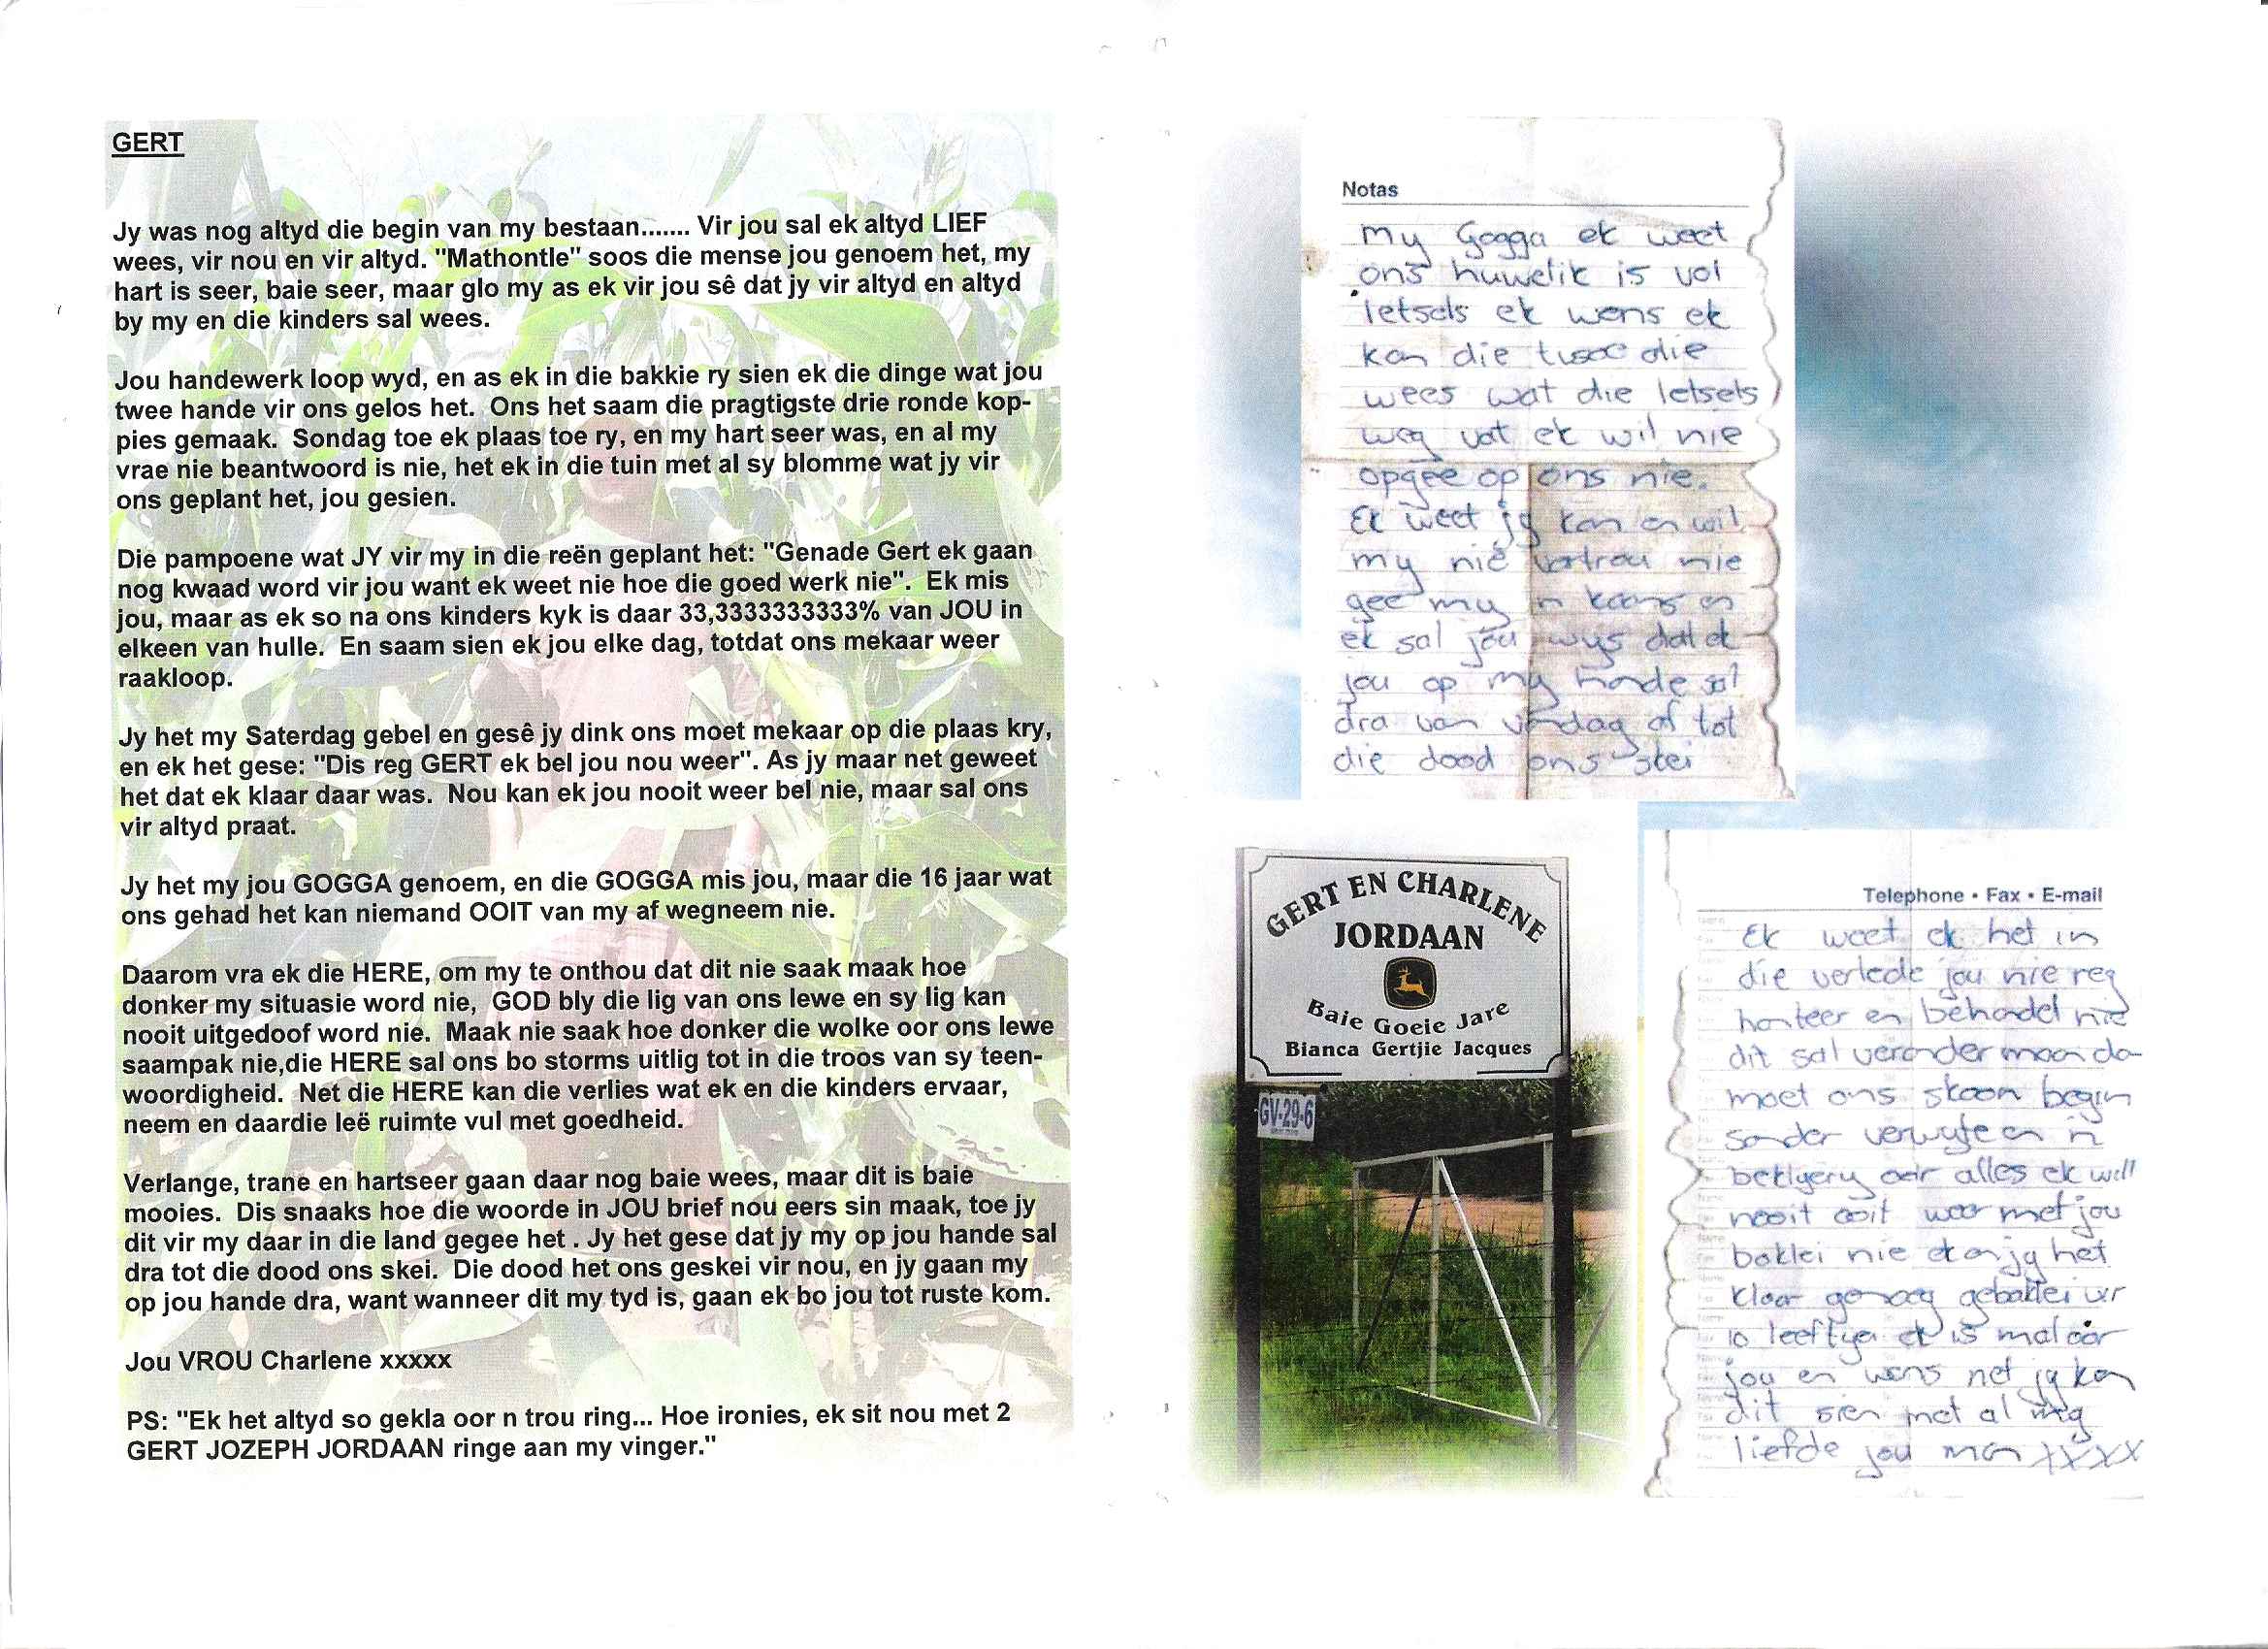 GERT
Jy was nog altyd die begin van my bestaan....... Vir jou sal ek altyd LIEF
wees, vir nou en vir altyd. "Mathontle" soos die mense jou genoem het, my
hart is seer, baie seer, maar glo my as ek vir jou sê dat jy vir altyd en altyd
by my en die kinders sal wees.
Jou handewerk loop wyd, en as ek in die bakkie ry sien ek die dinge wat jou
twee hande vir ons gelos het.  Ons het saam die pragtigste drie ronde kop-
pies gemaak.  Sondag toe ek plaas toe ry, en my hart seer was, en al my
vrae nie beantwoord is nie, het ek in die tuin met al sy blomme wat jy vir
ons geplant het, jou gesien.
Die pampoene wat JY vir my in die reën geplant het: "Genade Gert ek gaan
nog kwaad word vir jou want ek weet nie hoe die goed werk nie".  Ek mis
jou, maar as ek so na ons kinders kyk is daar 33,3333333333% van JOU in
elkeen van hulle.  En saam sien ek jou elke dag, totdat ons mekaar weer
raakloop.
Jy het my Saterdag gebel en gesê jy dink ons moet mekaar op die plaas kry,
en ek het gese: "Dis reg GERT ek bel jou nou weer". As jy maar net geweet
het dat ek klaar daar was.  Nou kan ek jou nooit weer bel nie, maar sal ons
vir altyd praat.
Jy het my jou GOGGA genoem, en die GOGGA mis jou, maar die 16 jaar wat
ons gehad het kan niemand OOIT van my af wegneem nie.
Daarom vra ek die HERE, om my te onthou dat dit nie saak maak hoe
donker my situasie word nie,  GOD bly die lig van ons lewe en sy lig kan
nooit uitgedoof word nie.  Maak nie saak hoe donker die wolke oor ons lewe
saampak nie,die HERE sal ons bo storms uitlig tot in die troos van sy teen-
woordigheid.  Net die HERE kan die verlies wat ek en die kinders ervaar,
neem en daardie leë ruimte vul met goedheid.
Verlange, trane en hartseer gaan daar nog baie wees, maar dit is baie
mooies.  Dis snaaks hoe die woorde in JOU brief nou eers sin maak, toe jy
dit vir my daar in die land gegee het . Jy het gese dat jy my op jou hande sal
dra tot die dood ons skei.  Die dood het ons geskei vir nou, en jy gaan my
op jou hande dra, want wanneer dit my tyd is, gaan ek bo jou tot ruste kom.
Jou VROU Charlene xxxxx
PS: "Ek het altyd so gekla oor n trou ring... Hoe ironies, ek sit nou met 2
GERT JOZEPH JORDAAN ringe aan my vinger."
Notas
My Gogga ek weet
ons huwelik is vol
letsels ek wens ek
kan die twee die
wees wat die letsels
weg vat ek wil nie
opgee op ons nie.
Ek weet jy kan en wil
my nie vertrou nie
gee my 'n kans en
ek sal jou wys dat ek
jou op my hande sal
dra van vandag af tot
die dood ons skei
GERT EN CHARLENE
JORDAAN
Baie Goeie Jare
Bianca Gertjie Jacques
GV-29-6
Telephone • Fax • E-mail
Ek weet ek het in
die verlede jou nie reg
hanteer en behandel nie
dit sal verander maar dan
moet ons skoon begin
sonder verwyte en 'n
beklyery oor alles ek will
nooit ooit weer met jou
baklei nie ek en jy het
klaar genoeg gebaklei vir
10 leeftye ek is mal oor
jou en wens net jy kan
dit sien met al my
liefde jou man xxxx